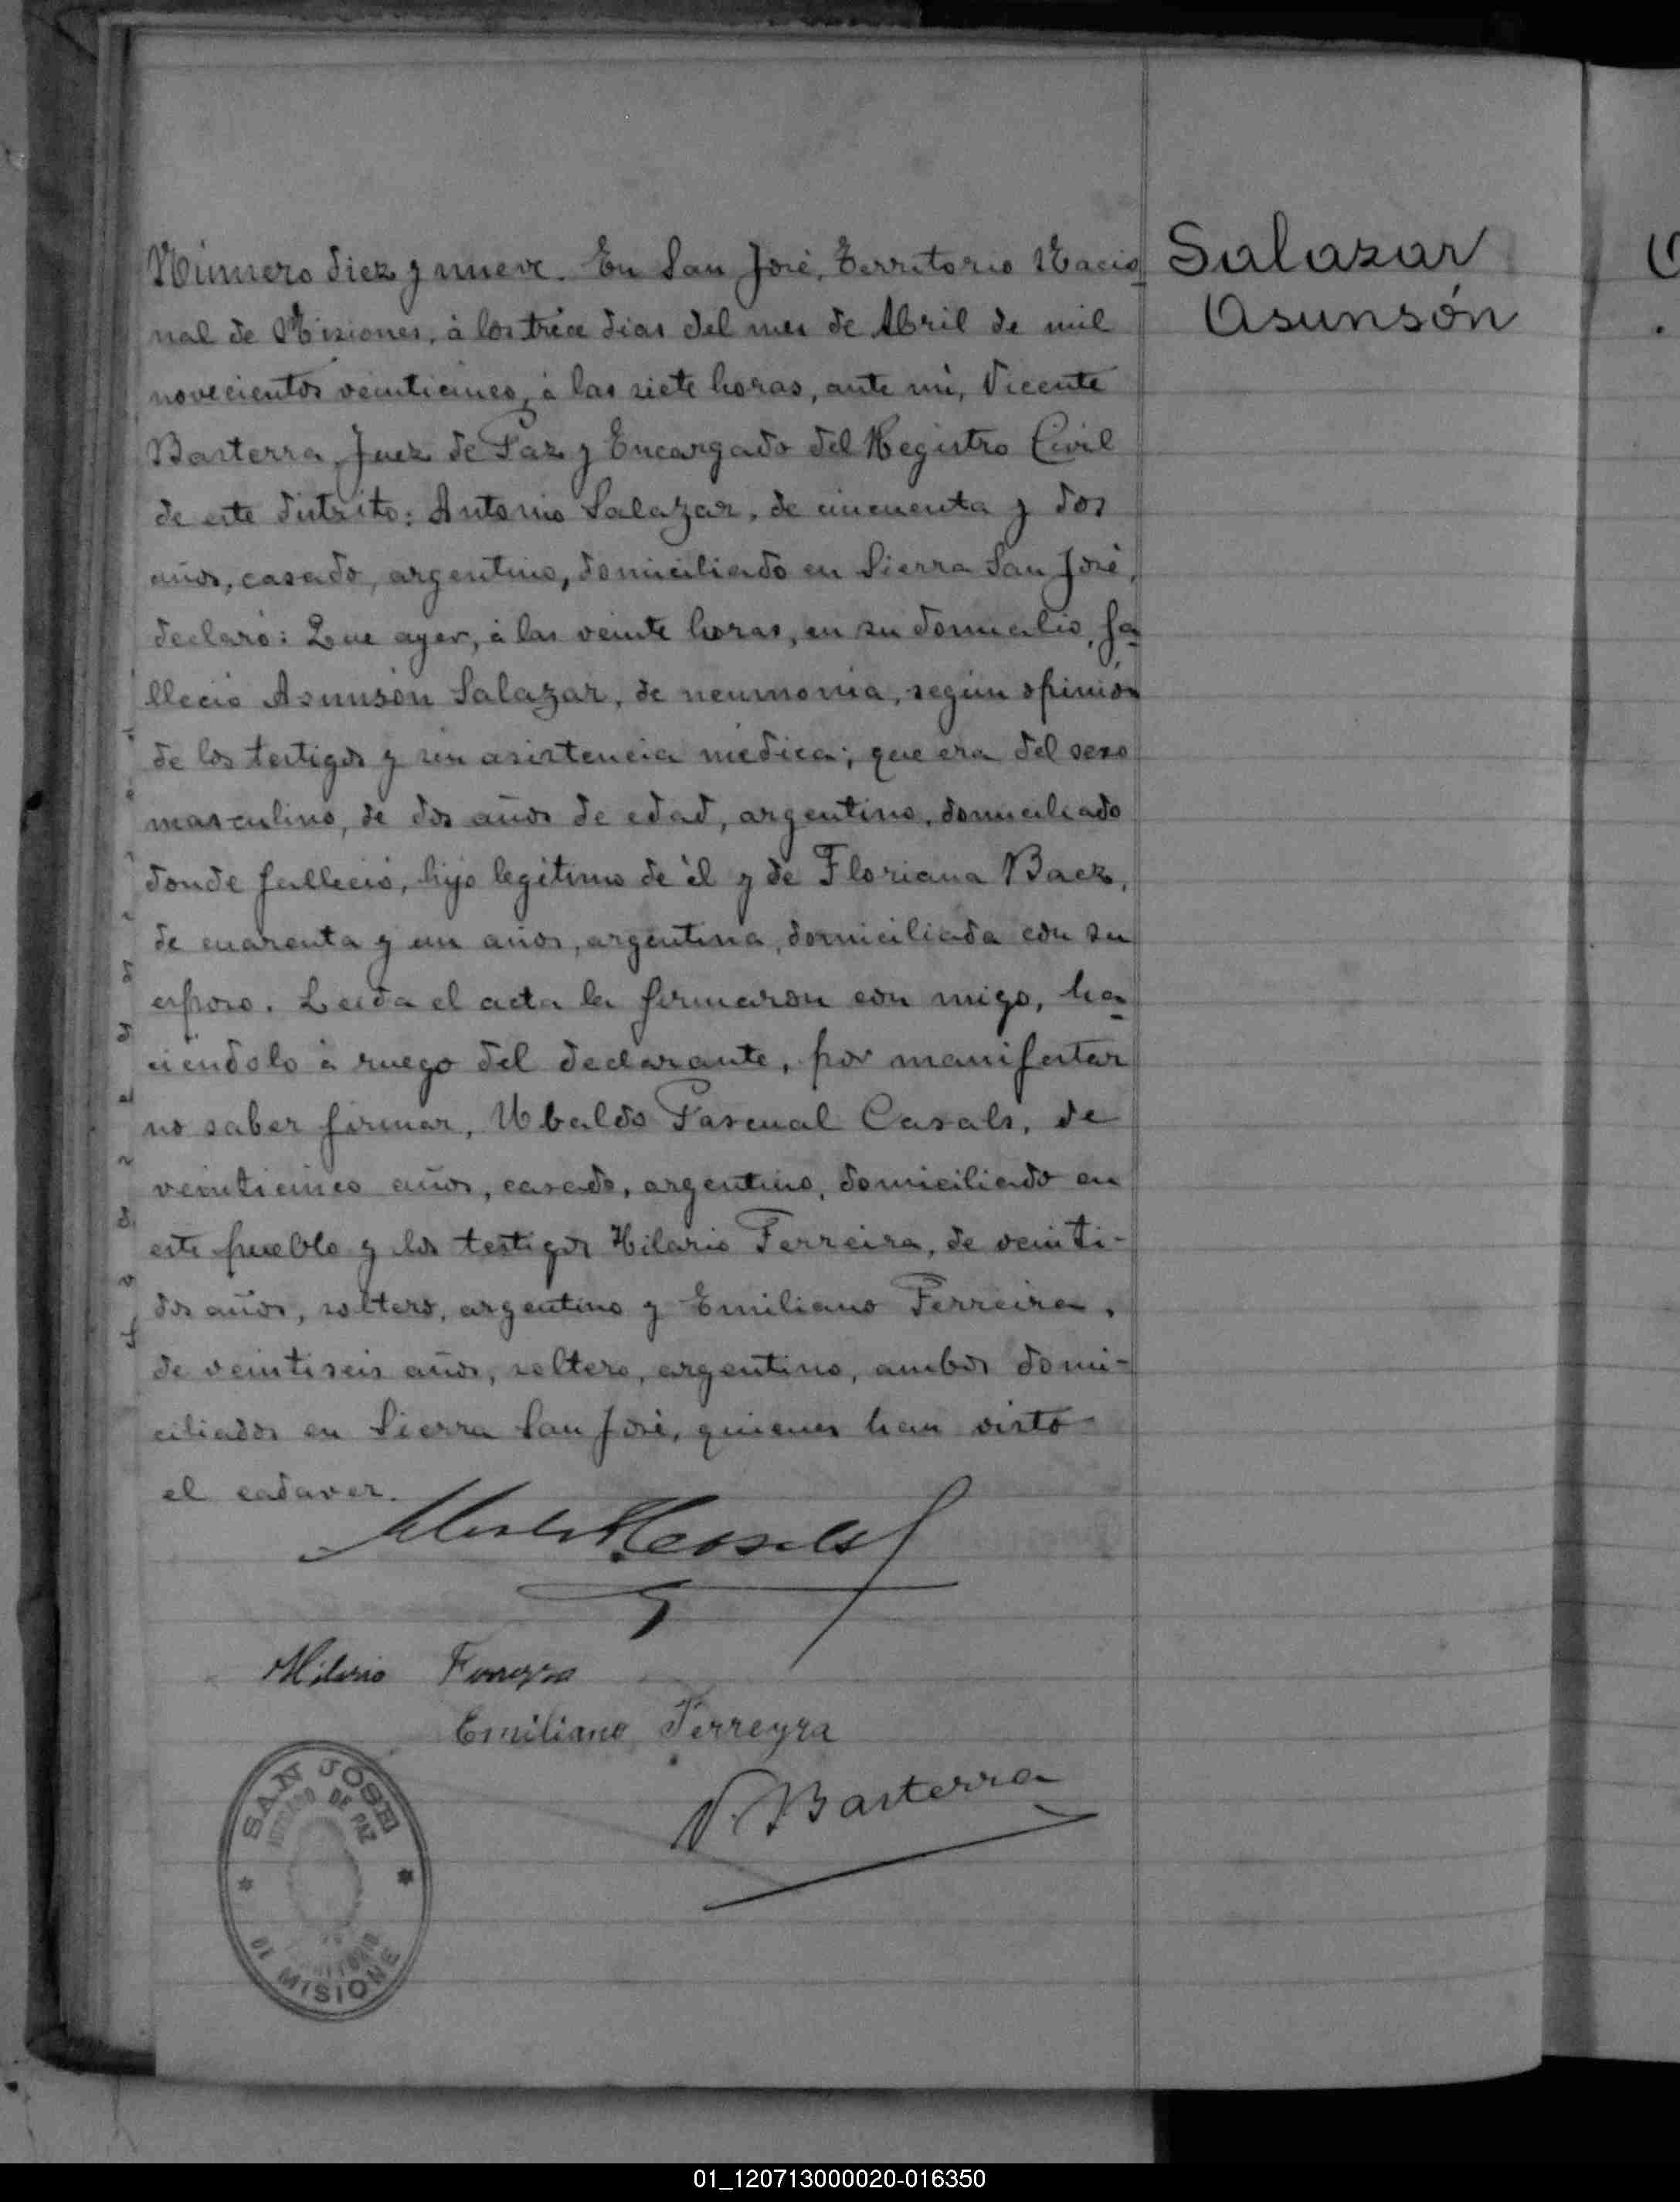 Número diez y nueve. En San José, Territorio Nacio
nal de Misiones, à los tréce dias del mes de Abril de mil
novecientos veinticinco, à las siete horas, ante mi, Vicente
Basterra, Juez de Paz y Encargado del Registro Civil
de este distrito: Antonio Salazar, de cincuenta y dos
años, casado, argentino, domiciliado en Sierra San José,
declaró: Que ayer, à las veinte horas, en su domicilio, fa
lleció Asunsón Salazar, de neumonia, según opinión
de los testigos y sin asistencia médica; que era del sexo
masculino, de dos años de edad, argentino, domiciliado
donde falleció, hijo legítimo de él y de Floriana Baez,
de cuarenta y un años, argentina, domiciliada con su
esposo. Leida el acta la firmaron con migo, ha
ciendolo à ruego del declarante, por manifestar
no saber firmar, Ubaldo Pascual Casals, de
veinticinco años, casado, argentino, domiciliado en
este pueblo y los testigos Hilario Ferreira, de veinti-
dos años, soltero, argentino y Emiliano Ferreira,
de veintiseis años, soltero, argentino, ambos domi-
ciliados en Sierra San José, quienes han visto
el cadaver.
Salazar
Asunsón
Hilario
Emiliano Ferreyra
V. Basterra
SAN JOSE
JUZGADO DE PAZ
TERRITORIO
DE MISIONE
01_120713000020-016350